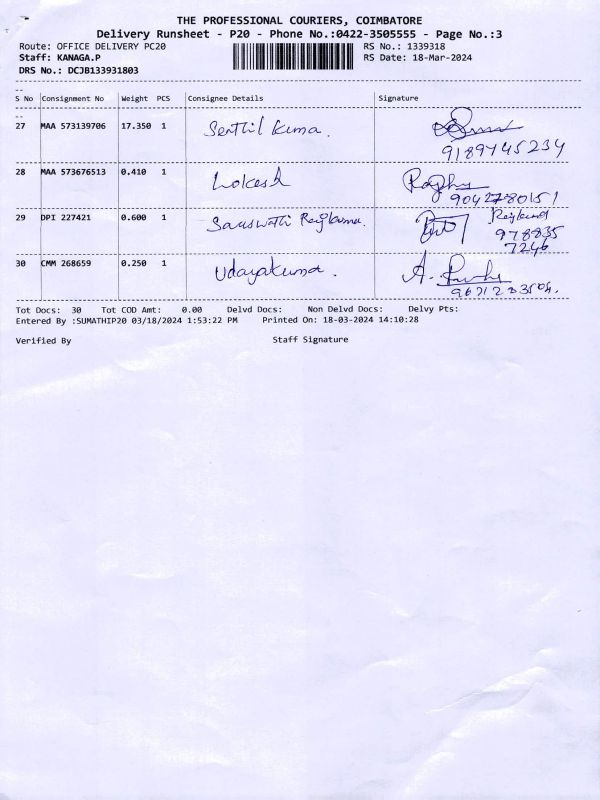 THE PROFESSIONAL COURIERS, COIMBATORE
Delivery Runsheet - P20 - Phone No.:0422-3505555 - Page No.:3
Route: OFFICE DELIVERY PC20 RS No.: 1339318
Staff: KANAGA.P RS Date: 18-Mar-2024
DRS No.: DCJB133931803
S No Consignment No Weight PCS Consignee Details Signature
27 MAA 573139706 17.350 1 Senthil Kuma.
9189745234
28 MAA 573676513 0.410 1 Lokesh Raghu
9042780151
29 DPI 227421 0.600 1 Saraswathi Rajkumar.
978835
7246
30 CMM 268659 0.250 1 Udayakuma.
Tot Docs: 30 Tot COD Amt: 0.00 Delvd Docs: Non Delvd Docs: Delvy Pts:
Entered By :SUMATHIP20 03/18/2024 1:53:22 PM Printed On: 18-03-2024 14:10:28
Verified By Staff Signature